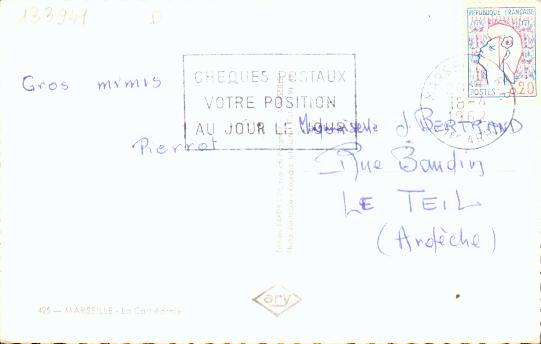 133941 D
RÉPUBLIQUE FRANÇAISE
POSTES 0,20
18-4
1962
CHEQUES POSTAUX
VOTRE POSITION
AU JOUR LE JOUR
Gros mimis
Pierrot
Mademoiselle J BERTRAND
Rue Baudin
LE TEIL
(Ardèche)
ary
425 — MARSEILLE - La Cathédrale